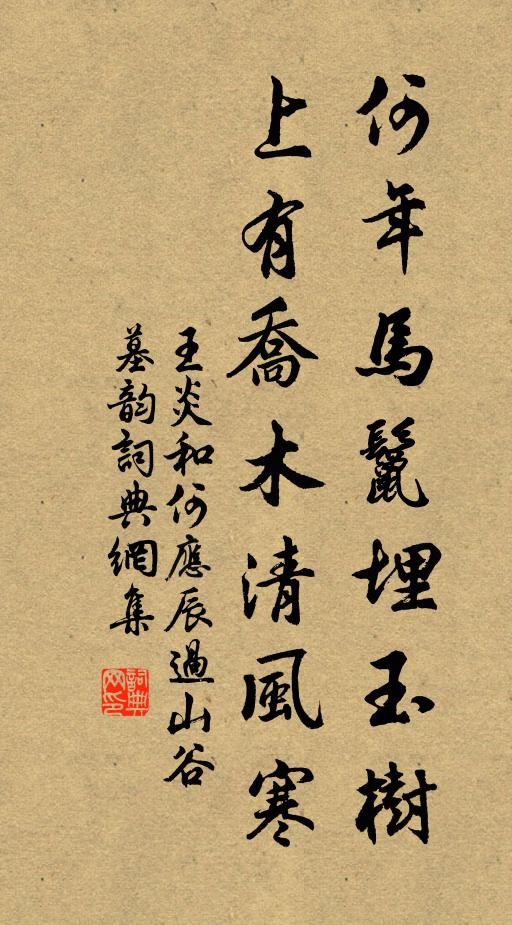 何年馬鬣埋玉樹
上有喬木清風寒
王炎和何應辰過山谷
墓韵詞典網集
詞典網印